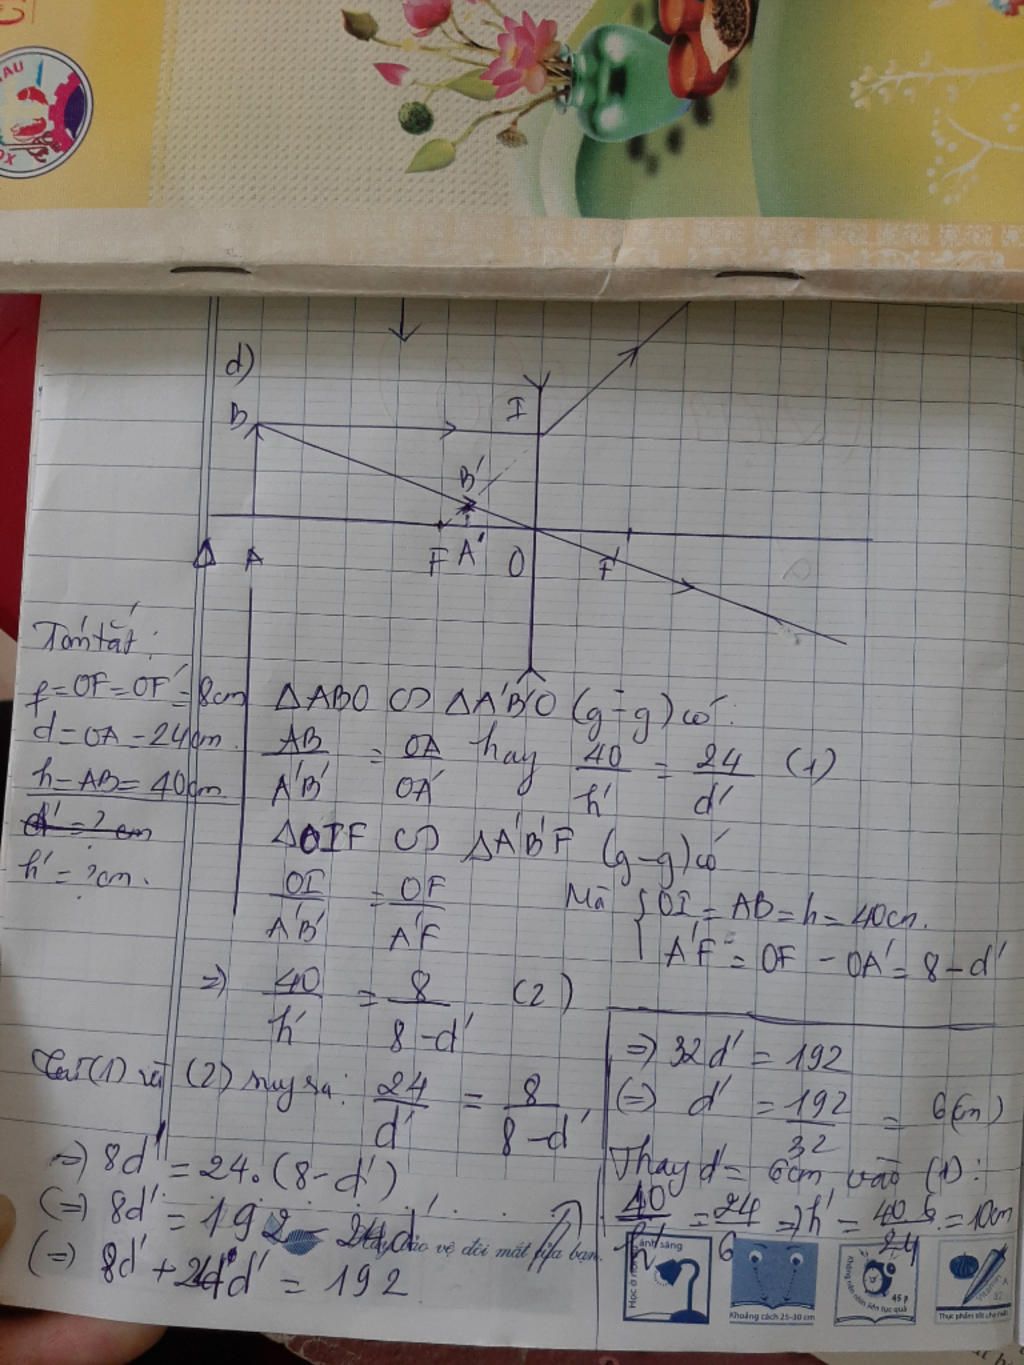 d)
B
I
B'
Δ
A
F
A'
O
F'
Tóm tắt:
f = OF = OF' = 8cm
d = OA = 24cm.
h = AB = 40cm
d' = ? cm
h' = ? cm.
ΔABO ∽ ΔA'B'O (g-g) có:
AB/A'B' = OA/OA' hay 40/h' = 24/d' (1)
ΔOIF ∽ ΔA'B'F (g-g) có
OI/A'B' = OF/A'F
Mà { OI = AB = h = 40cm.
A'F = OF - OA' = 8 - d'
=> 40/h' = 8/8-d' (2)
Từ (1) và (2) suy ra: 24/d' = 8/8-d'
=> 8d' = 24.(8-d')
(=) 8d' = 192 - 24d'
(=) 8d' + 24d' = 192
=> 32d' = 192
(=) d' = 192/32 = 6(cm)
Thay d' = 6cm vào (1):
40/h' = 24/6 => h' = 40.6/24 = 10cm
bảo vệ đôi mắt của bạn.
ánh sáng
Học ở nơi
Khoảng cách 25-30 cm
45 p
Thực phẩm tốt cho mắt
Vitamin A